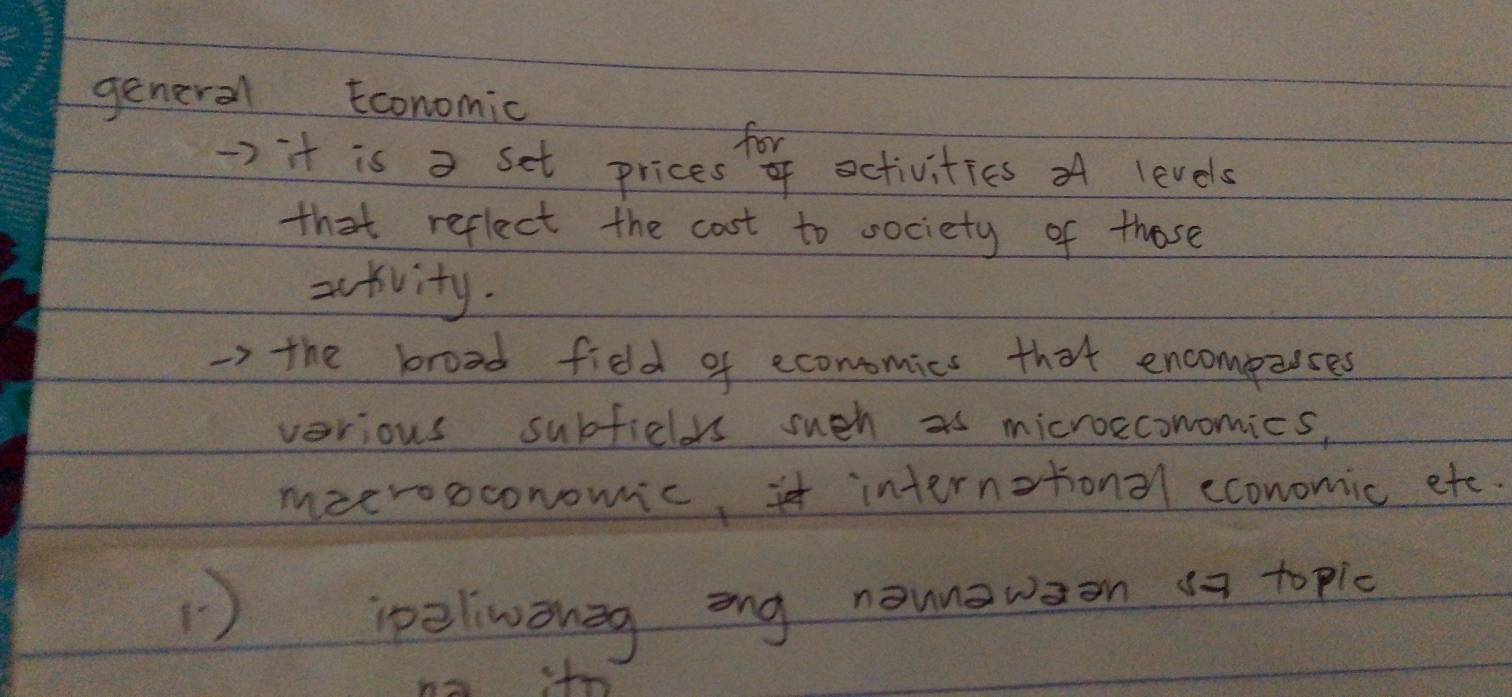 general Economic
→ it is a set prices for activities A levels
that reflect the cost to society of those
activity.
→ the broad field of economics that encompasses
various subfields such as microeconomics,
macroeconomic, international economic etc.
1.) ipaliwanag ang naunawaan sa topic
na ito